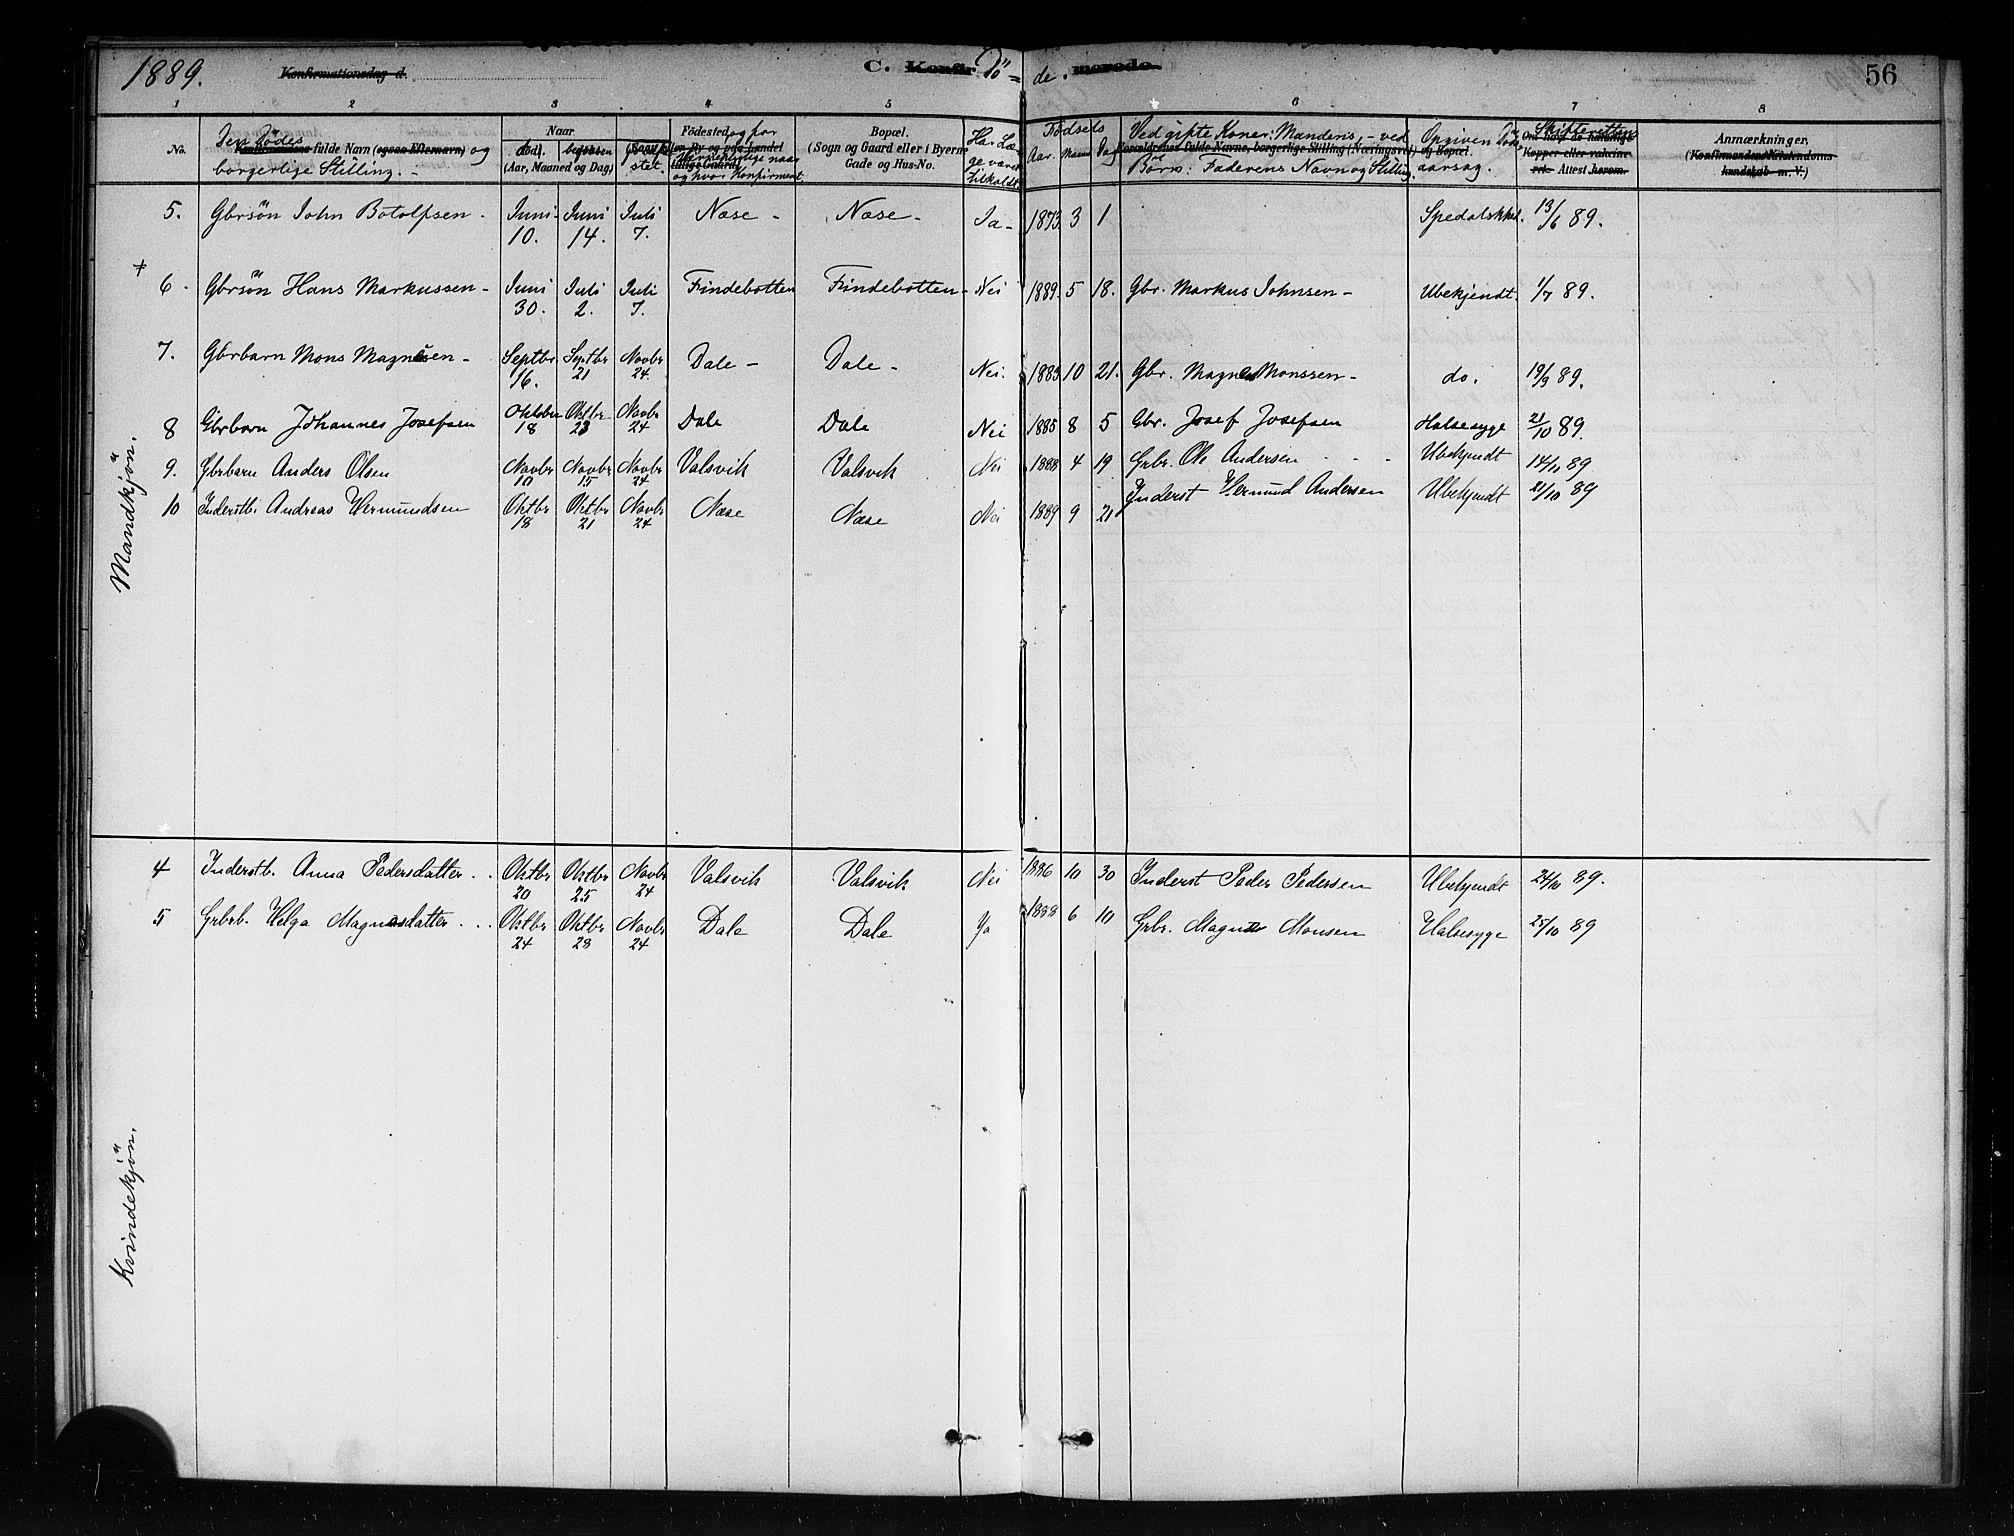 1889. Konfirmationsdag d. C. Konfir Dö= de. merede. 56
1 2 3 4 5 6 7 8
No. Den Dödes Konfirmandens fulde Navn (ogsaa Efternavn) og borgerlige Stilling. -
Naar död. begraven (Aar, Maaned og Dag)
Födested og for
og hvor konfirmeret
Bopæl. (Sogn og Gaard eller i Byerne Gade og Hus-No.
Har Læge været tilkaldt
Födsels Aar. Maaned Dag
Ved gifte Koner: Mandens, - ved Forældrenes fulde Navne, borgerlige Stilling (Næringsvei) og Bopæl. Börn: Faderens Navn og Stilling.
Opgiven Dödsaarsag.
Skifteretten
Kopper eller vaksineret. Attest herom.
Anmærkninger. (Konfirmandens Kristendomskundskab m. V.)
Mandkjön.
5. Gbrsön John Botolfsen - Juni 10. Juni 14. Juli 7. Næse - Næse - Ja - 1873. 3 1 Spedalskhed. 13/6 89.
+
6. Gbrsön Hans Markussen - Juni 30. Juli 2. Juli 7. Findebotten Findebotten - Nei 1889. 5 18. Gbr. Markus Johnsen - Ubekjendt. 1/7 89.
7. Gbrbarn Mons Magnesen - Septbr. 16. Septbr 21 Novbr 24. Dale - Dale - Nei. 1883 10 21. Gbr. Magnes Monssen - do. 19/9 89.
8 Gbrbarn Johannes Josefsen Oktober 18 Oktbr 23 Novbr 24 Dale Dale Nei 1885 8 5 Gbr. Josef Josefsen Halsesyge 21/10 89.
9. Gbrbarn Anders Olsen Novbr 10 Novbr 15 Novbr 24 Valsvik Valsvik Nei 1888 4 19 Grbr. Ole Andersen - - - Ubekjendt 14/11 89
10 Inderstb. Andreas Vermundsen Oktbr 18 Oktbr 21 Novbr 24 Næse Næse Nei 1889 9 21 Inderst Vermund Andersen Ubekjendt 21/10 89
Kvindekjön.
4 Inderstb. Anna Pedersdatter . . Oktbr 20 Oktbr 25 Novbr 24 Valsvik Valsvik Nei 1886 10 30 Inderst Peder Pedersen Ubekjendt 24/10 89.
5 Grbrb. Helga Magnesdatter . . . Oktbr 24 Oktbr 28 Novbr 24 Dale Dale Ja 1888 6 10 Grbr. Magnes Monsen Halsesyge 25/10 89